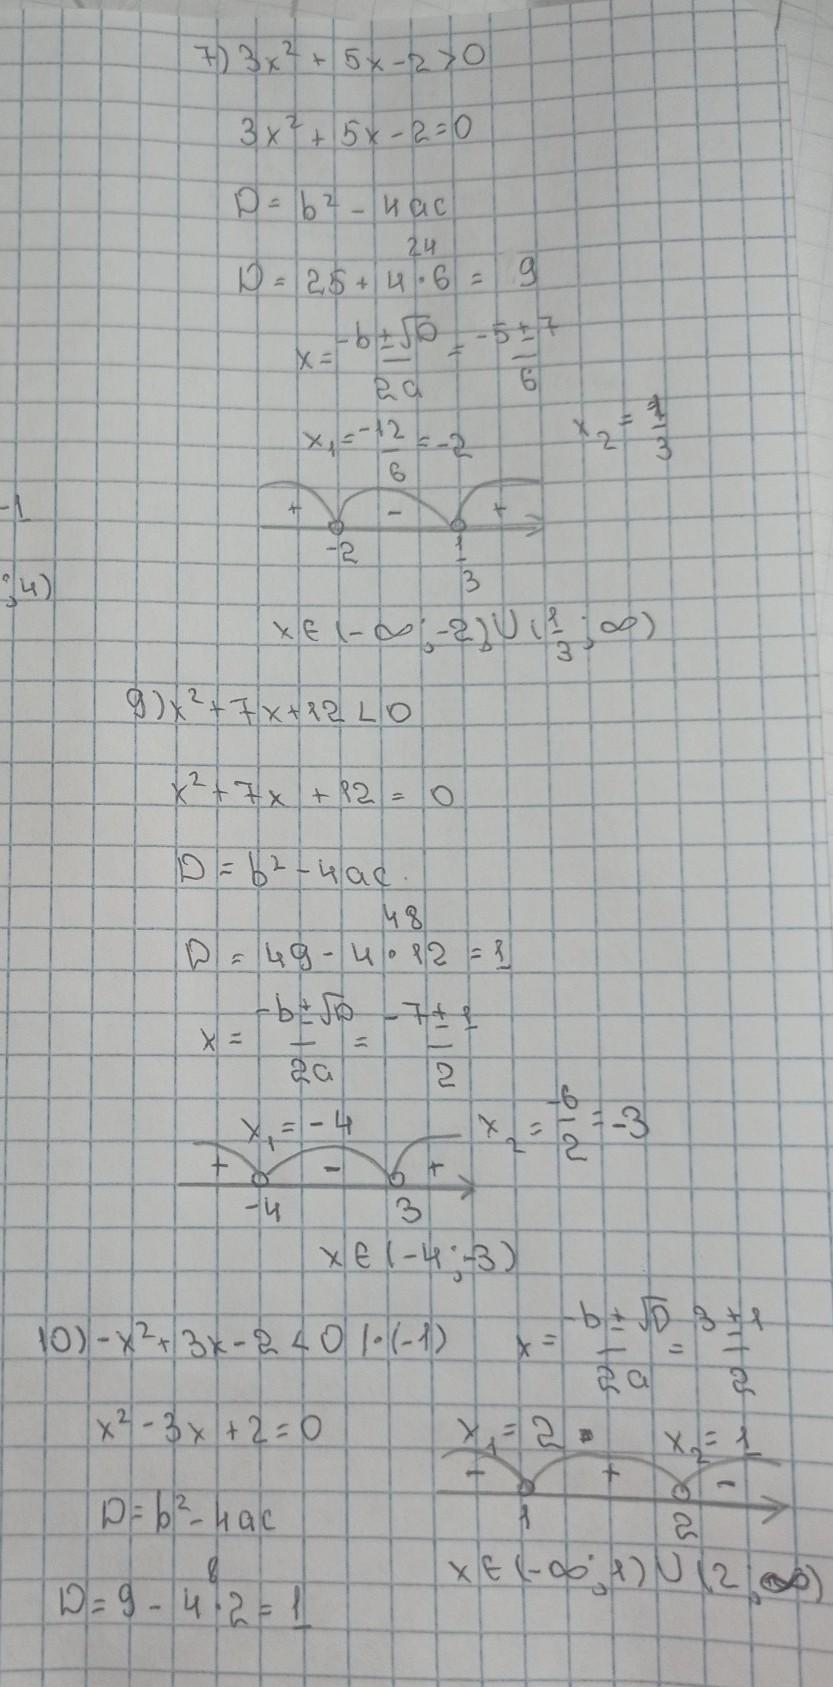 7) 3x² + 5x - 2 > 0
3x² + 5x - 2 = 0
D = b² - 4ac
24
D = 25 + 4 · 6 = 9
x = (-b ± √D)/2a = (-5 ± 7)/6
x₁ = -12/6 = -2 x₂ = 1/3
+ - +
-1
-2 1/3
; 4)
x ∈ (-∞; -2) ∪ (1/3; ∞)
9) x² + 7x + 12 < 0
x² + 7x + 12 = 0
D = b² - 4ac.
48
D = 49 - 4 · 12 = 1
x = (-b ± √D)/2a = (-7 ± 1)/2
x₁ = -4 x₂ = -6/2 = -3
+ - +
-4 3
x ∈ (-4; -3)
10) -x² + 3x - 2 < 0 | · (-1)
x = (-b ± √D)/2a = (3 ± 1)/2
x² - 3x + 2 = 0
x₁ = 2 x₂ = 1
- + -
1 2
D = b² - 4ac
x ∈ (-∞; 1) ∪ (2; ∞)
8
D = 9 - 4 · 2 = 1